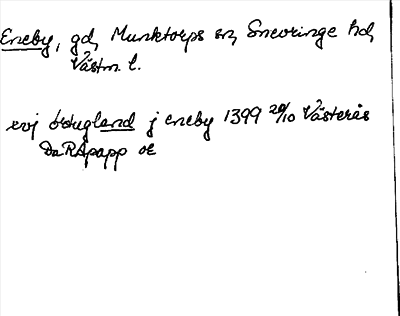 Eneby, gd, Munktorps sn, Snevringe hd,
Västm. l.
xvj ørtugland j eneby 1399 20/10 Västerås
DaRApapp or